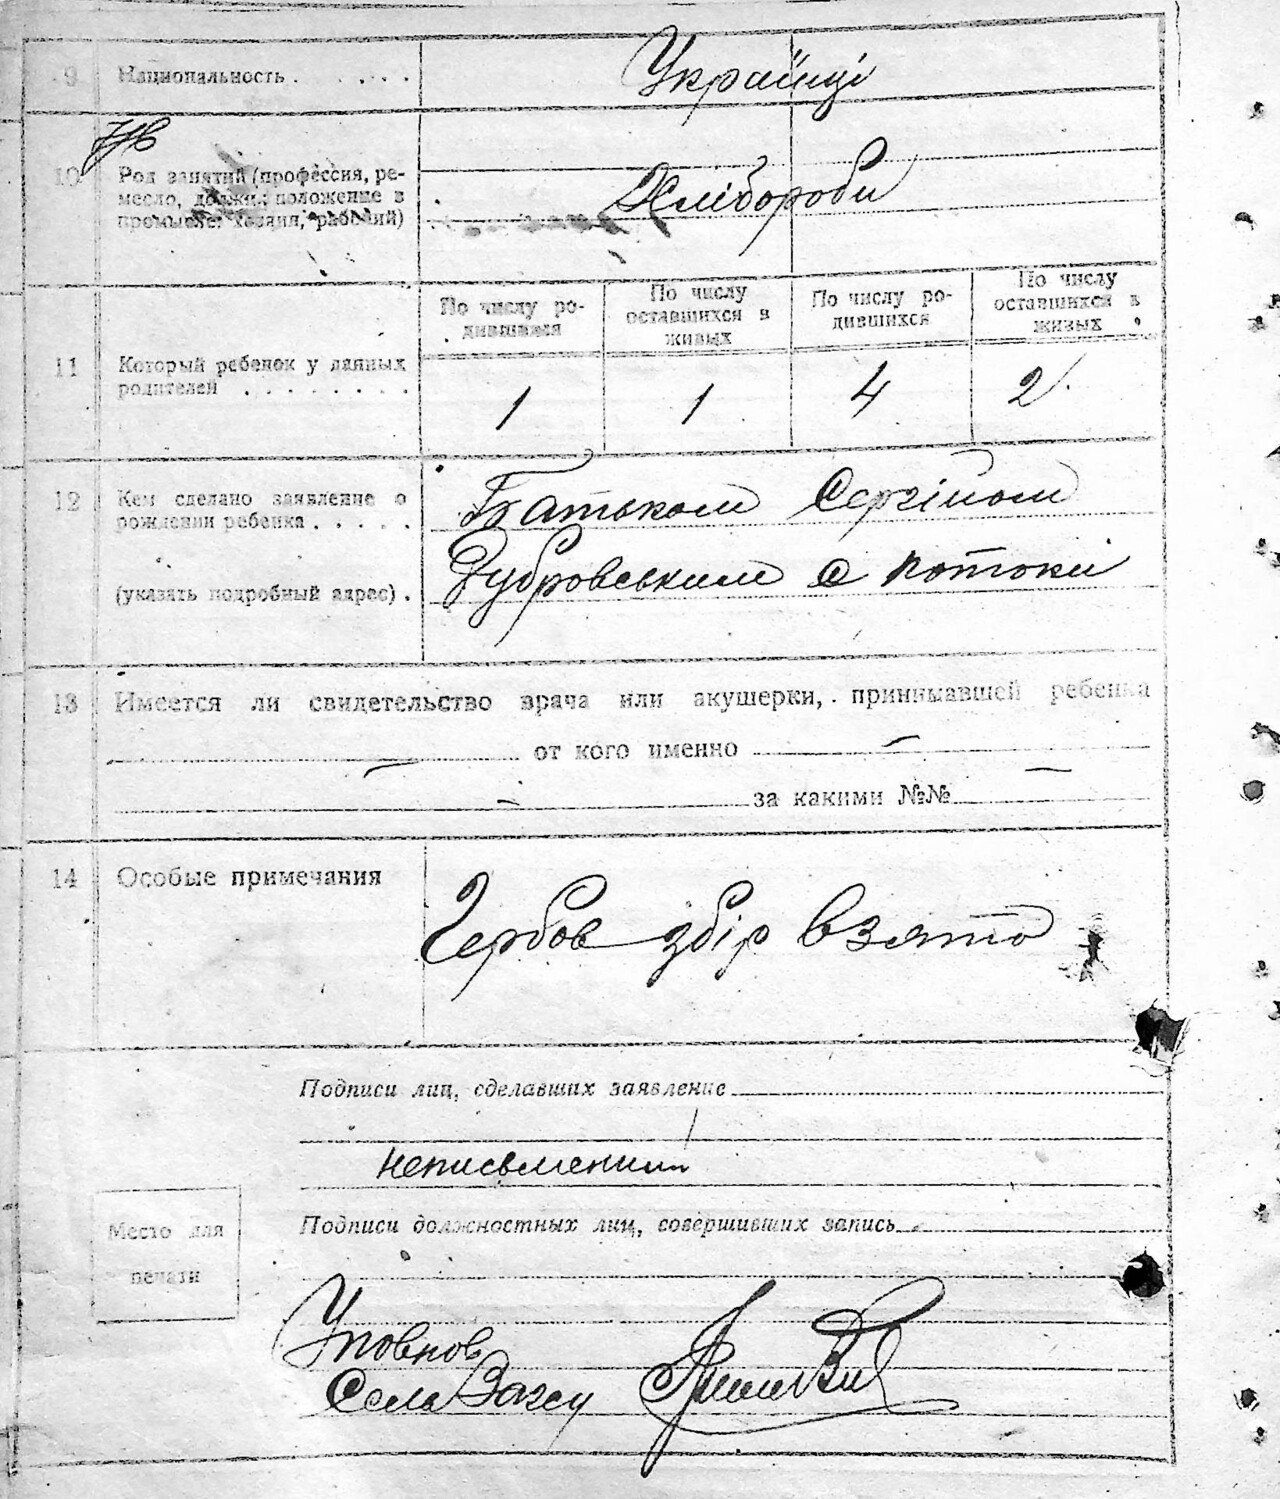 9 Национальность . . . . . Українці
10 Род занятий (профессия, ре-
месло, должн.: положение в
промысле: хозяин, рабочий)
Хлібороби
По числу ро-
дившихся
По числу
оставшихся в
живых
По числу ро-
дившихся
По числу
оставшихся в
живых
11 Который ребенок у данных
родителей . . . . . . . .
1 1 4 2
12 Кем сделано заявление о
рождении ребенка . . . . .
(указать подробный адрес) .
Батьком Сергійом
Дубровським с Потоки
13 Имеется ли свидетельство врача или акушерки, принимавшей ребенка
от кого именно
за какими №№
14 Особые примечания
Гербов збір взято
Подписи лиц, сделавших заявление
неписьменний
Подписи должностных лиц, совершивших запись
Место для
печати
Уповнов
Села